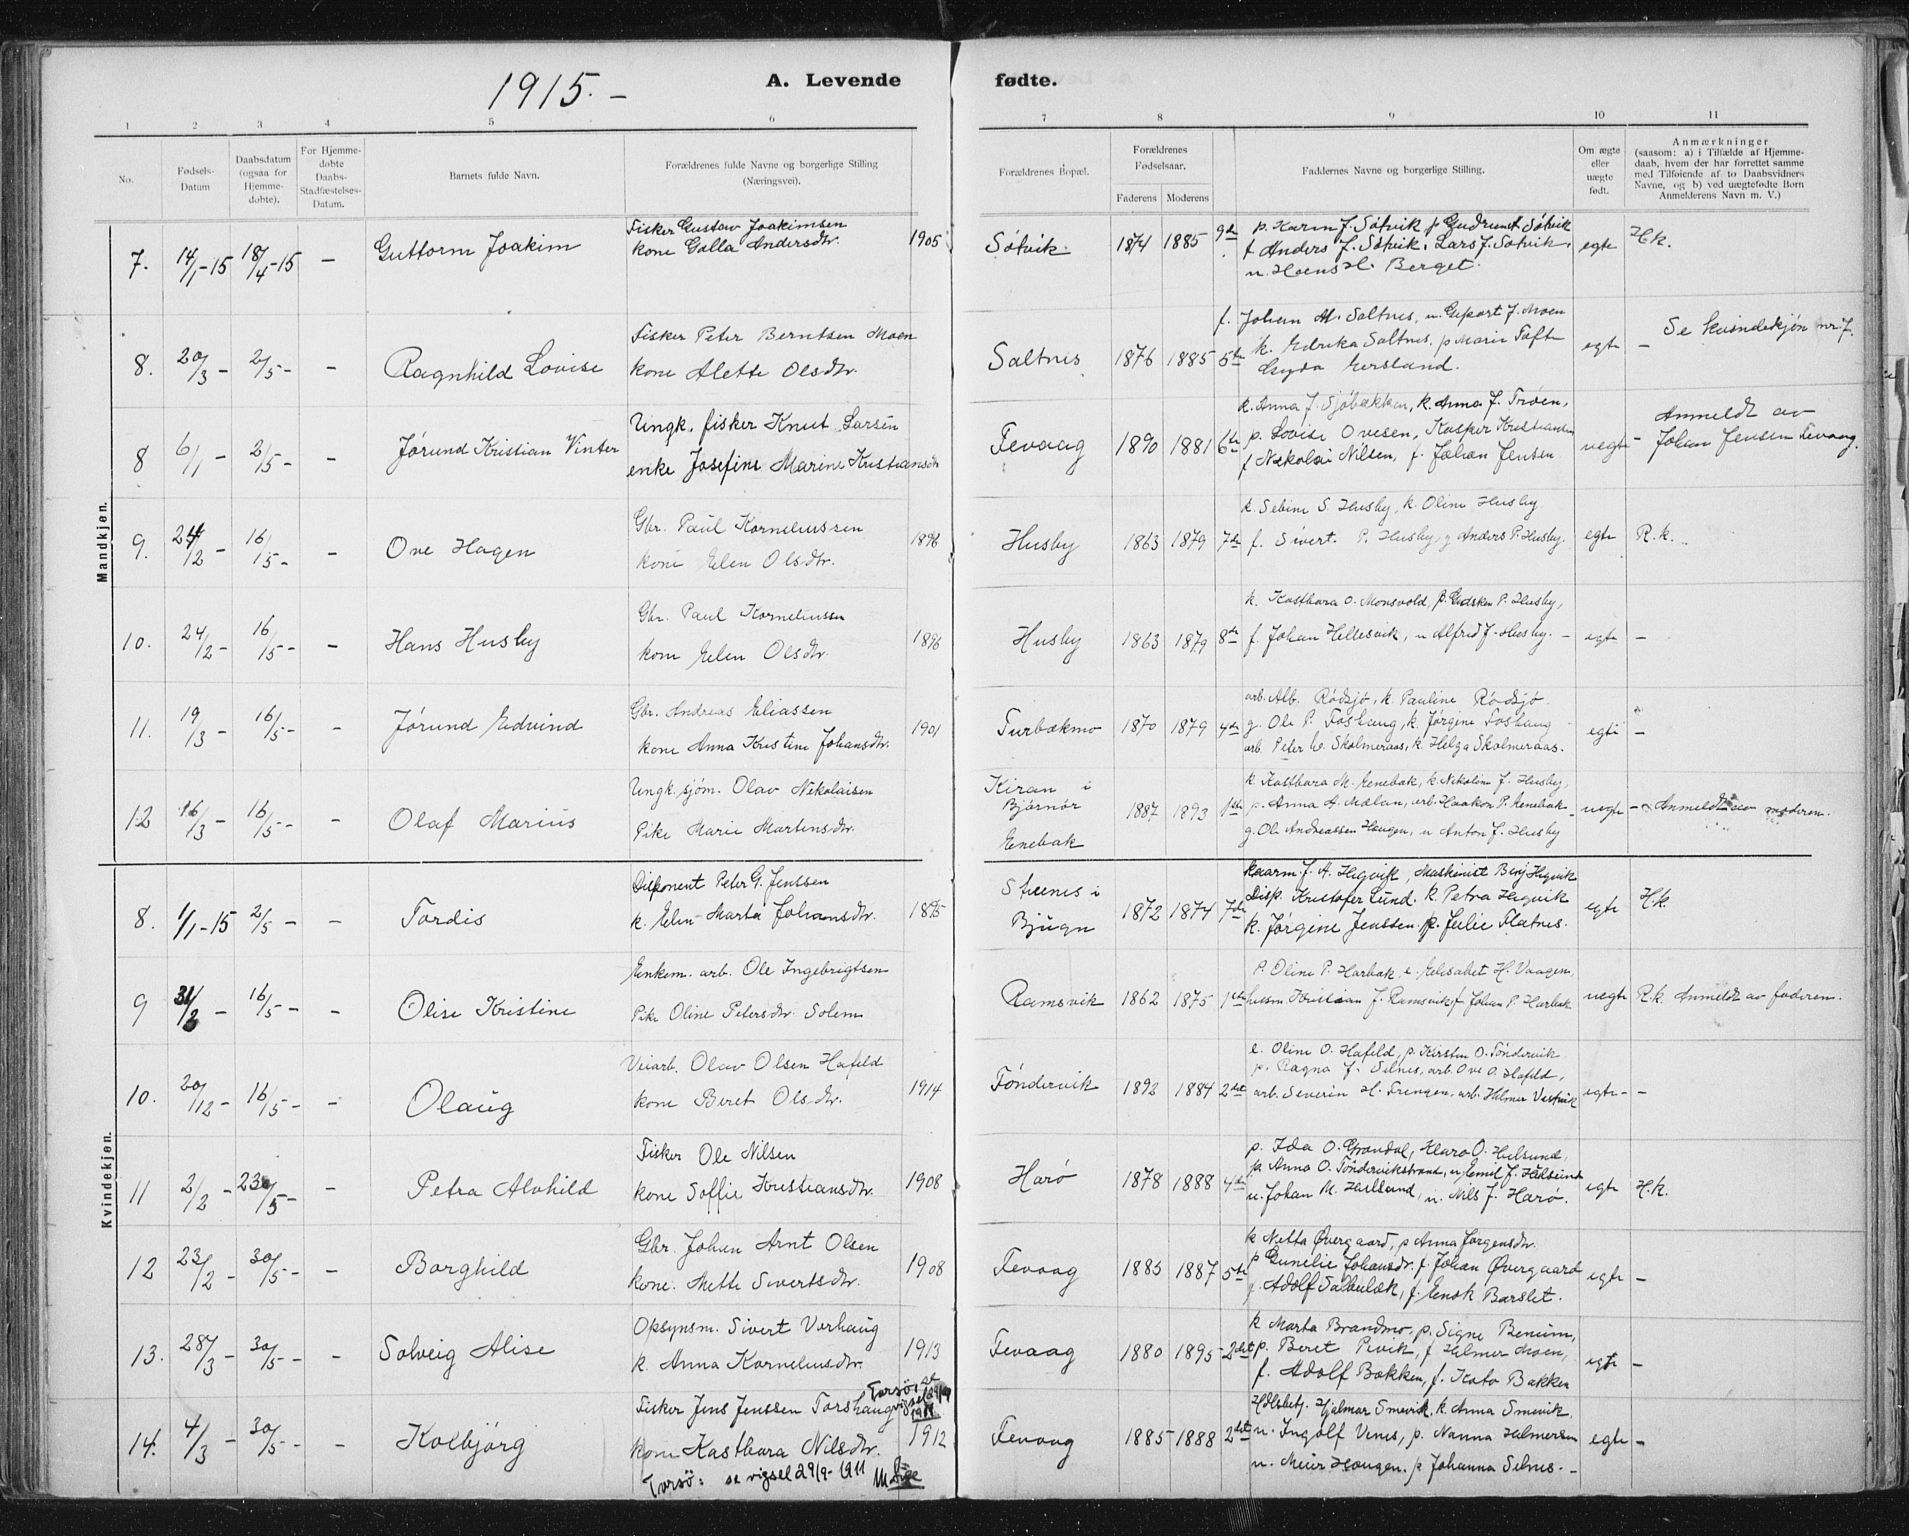 1915.-
A. Levende fødte.
1 2 3 4 5 6 7 8 9 10 11
No.
Fødsels-Datum
Daabsdatum (ogsaa for Hjemme-døbte).
For Hjemme-døbte Daabs-Stadfæstelses-Datum.
Barnets fulde Navn.
Forældrenes fulde Navne og borgerlige Stilling (Næringsvei).
Forældrenes Bopæl.
Forældrenes Fødselsaar.
Faderens Moderens
Faddernes Navne og borgerlige Stilling.
Om ægte eller uægte født.
Anmærkninger
(saasom: a) i Tilfælde af Hjemme-
daab, hvem der har forrettet samme
med Tilføiende af to Daabsvidners
Navne, og b) ved uægtefødte Børn
Anmelderens Navn m. V.)
Mandkjøn.
7. 14/1-15 18/4-15 - Guttorm Joakim
Fisker Gustav Joakimsen
kone Golla Andersdtr. 1905
Søtvik. 1874 1885 9de
p. Karin J. Søtvik p Gudrun J. Søtvik
f Anders J. Søtvik, Lars J. Søtvik,
u. Hoens H. Berget.
egte H.k.
8. 20/3 - 2/5 - - Ragnhild Lovise
Fisker Peter Berntsen Moen
kone Alette Olsdtr.
Saltnes 1876 1885 5te
f. Johan M. Saltnes, u. J. Moen
k. Edrika Saltnes, p Marie Tøfte
Gyda
egte - Se kvindekjøn nr. 7.
8 6/1 - 2/5 - - Jørund Kristian Vinter
Ungk. fisker Knut Larsen
enke Josefine Marine Kristiansdtr
Fevaag 1890 1881 6te
k. Anna J. Sjøbakken, k. Anna J. Trøen,
p. Lovise Ovesen, Kasper Kristiansen
f Nikolai Nilsen, f. Johan Jensen
uegte - Anmeldt av
Johan Jensen Fevaag.
9. 24/12 - 16/5 - - Ove Hagen
Gbr. Paul Korneliussen
kone Elen Olsdtr. 1896
Husby 1863 1879 7de
k. Sebine S. Husby, k. Oline Husby
f. Sivert P. Husby, g Anders P. Husby.
egte R.k.
10. 24/2 - 16/5 - - Hans Husby
Gbr. Paul Korneliussen
kone Elen Olsdtr. 1896
Husby 1863 1879 8de
k. Kastbara O. Monsvold, P. Husby,
f. Johan Hellesvik, u Alfred J. Husby. -
egte -
11. 19/3 - 16/5 - - Jørund Edvind
Gbr. Andreas Eliassen
kone Anna Kristine Johansdtr. 1901
Turbækmo 1870 1879 4de
arb. Alb. Rødsjø, k. Pauline Rødsjø
g Ole P. Foshaug, k. Jørgine Foshaug
arb. Peter Skolmeraas, k. Helga Skolmeraas.
egte -
12 16/3 - 16/5 - - Olaf Marius
Ungk. sjøm. Olav Nikolaisen
Pike Marie Martensdtr.
Kiran i
Bjørnør
Enebak
1887 1893 1ste
k. Kastbara M. Enebak, k. Nikoline J. Husby,
p. Anna A. Mælan, arb. Haakon P. Enebak
g. Ole Andreassen Haugen, u Anton J. Husby
uegte - Anmeldt av moderen.
Kvindekjøn.
8. 1/1-15 2/5 - - Tordis
Disponent Peter G. Jenssen
k. Elen Marta Johansdtr. 1895
i
Bjugn
1872 1874 7de
J. A. Høgvik, Maskinist Høgvik
Disp. Kristofer Lund, k. Petra Høgvik
k. Jørgine Jenssen, p. Julie Flatnes.
egte H.k.
9 31/2 - 16/5 - - Olise Kristine
Enkem. arb. Ole Ingebrigtsen
Pike Oline Petersdtr. Solem
Ramsvik 1862 1875 1ste
P. Oline P. Harbak, e. Elisabet H. Vaagen,
husm Kristian J. Ramsvik, f Johan P. Harbak
uegte R.k. Anmeldt av faderen.
10. 20/12 - 16/5 - - Olaug
Veiarb. Olav Olsen Hafeld
kone Beret Olsdtr. 1914
Tøndervik 1892 1884 2det
e. Oline O. Hafeld, p. Kirsten O. Tøndervik
p. Ragna J. Selnes, arb. Ove O. Hafeld,
arb. Severin H. Trengen, arb. Hilmer Vestvik
egte - -
11 2/2 - 23/5 - - Petra Alvhild
Fisker Ole Nilsen
kone Soffie Kristiansdtr. 1908
Harø 1878 1888 4de
p. Ida O. Grøndal, Klara O. Hulsund,
p. Anna O. Tøndervikstrand, u. Emil J. Hulsund
u. Johan M. Hulsund, u. Nils J. Harø.
egte H.k.
12 23/2 - 30/5 - - Borghild
Gbr. Johan Arnt Olsen
kone. Mette Sivertsdtr. 1908
Fevaag 1885 1887 5te
k Netta Øvergaard, p Anna Jørgensdtr.
p Gunelie Johansdr. f Johan Øvergaard
g. Adolf Salbubæk, f. Enok Barslet.
egte -
13. 28/3 - 30/5 - - Solveig Alise
Opsynsm. Sivert Vorhaug
k. Anna Kornelinsdtr. 1913
Fevaag 1880 1895 - 2det
k Marta Brandmo, p. Signe Benum,
p. Beret Pevik, f Helmer Moen,
f. Adolf Bakken, f. Kato Bakken
egte -
14. 4/3 - 30/5 - - Kolbjørg
Fisker Jens Jenssen Torshaug Torsø, se vigsel 29/9 1911
kone Kastbara Nilsdtr. 1912
Torsø: se vigsel 29/9-1911
Fevaag 1885 1888 2det
Hjalmar Smevik, k Anna Smevik,
u. Ingolf Vines, p. Nanna Helmersen
u. Meier Haugen, p Johanna Selnes. -
egte -